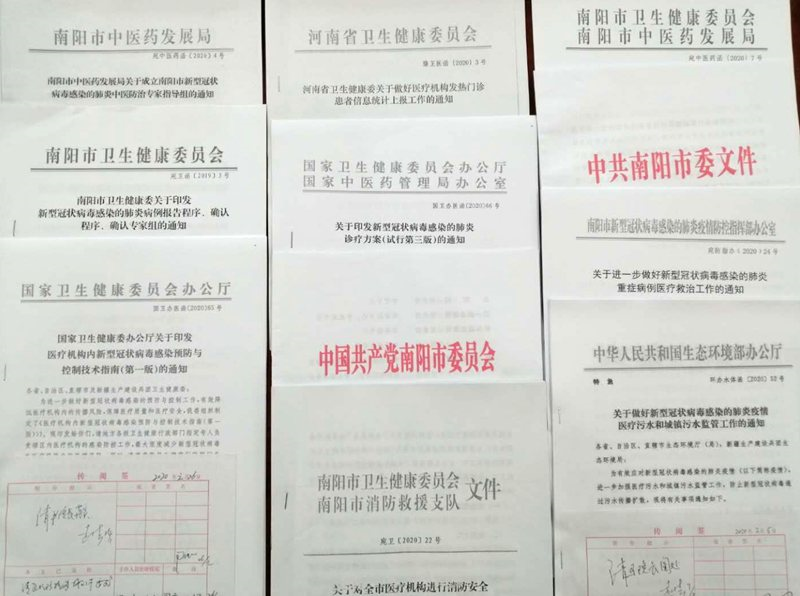 南阳市中医药发展局
宛中医药函〔2020〕4号
南阳市中医药发展局关于成立南阳市新型冠状
病毒感染的肺炎中医防治专家指导组的通知
南阳市卫生健康委员会
宛卫函〔2019〕3号
南阳市卫生健康委关于印发
新型冠状病毒感染的肺炎病例报告程序、确认
程序、确认专家组的通知
国家卫生健康委员会办公厅
国卫办医函〔2020〕65号
国家卫生健康委办公厅关于印发
医疗机构内新型冠状病毒感染预防与
控制技术指南(第一版)的通知
各省、自治区、直辖市及新疆生产建设兵团卫生健康委:
为进一步做好新型冠状病毒感染的预防与控制工作,有效降
低医疗机构内的传播风险,保障医疗质量和医疗安全,我委组织制
定了《医疗机构内新型冠状病毒感染预防与控制技术指南(第一
版)》,现印发给你们,请地方各级卫生健康行政部门指定专人负
责辖区内医疗机构的感染防控工作,最大限度减少新型冠状病毒
传阅签
河南省卫生健康委员会
豫卫医函〔2020〕3号
河南省卫生健康委关于做好医疗机构发热门诊
患者信息统计上报工作的通知
国家卫生健康委员会办公厅
国家中医药管理局办公室
国卫办医函〔2020〕66号
关于印发新型冠状病毒感染的肺炎
诊疗方案(试行第三版)的通知
中国共产党南阳市委员会
南阳市卫生健康委员会
南阳市消防救援支队
文件
宛卫〔2020〕22号
关于对全市医疗机构进行消防安全
南阳市卫生健康委员会
南阳市中医药发展局
宛中医药函〔2020〕7号
中共南阳市委文件
南阳市新型冠状病毒感染的肺炎疫情防控指挥部办公室
宛防指办〔2020〕24号
关于进一步做好新型冠状病毒感染的肺炎
重症病例医疗救治工作的通知
中华人民共和国生态环境部办公厅
特急
环办水体函〔2020〕52号
关于做好新型冠状病毒感染的肺炎疫情
医疗污水和城镇污水监管工作的通知
各省、自治区、直辖市生态环境厅(局),新疆生产建设兵团生
态环境局:
为有效应对新型冠状病毒感染的肺炎疫情(以下简称疫情),
进一步加强医疗污水和城镇污水监管工作,防止新型冠状病毒通
过污水传播扩散,现将有关事项通知如下。
传阅签